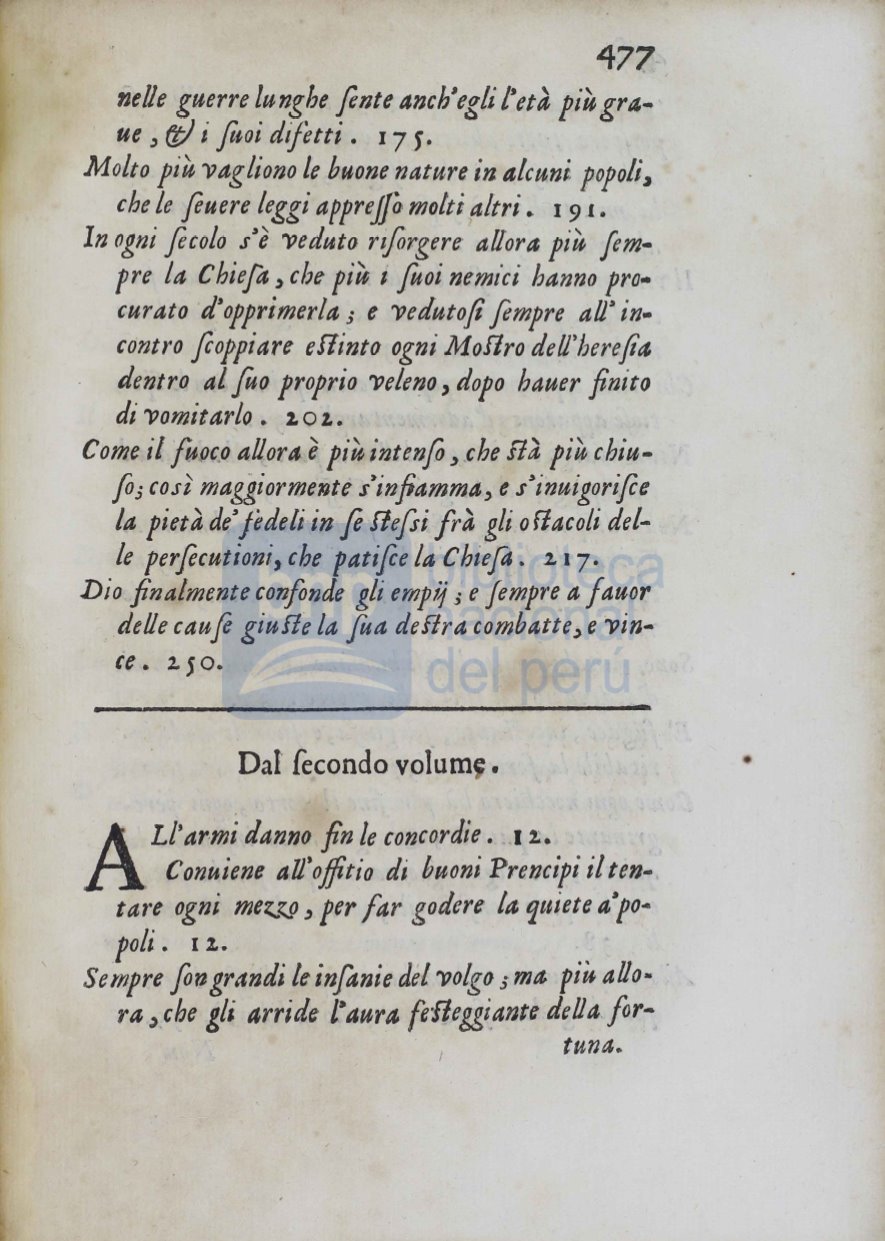 477
nelle guerre lunghe ſente anch'egli l'età più gra-
ue, & i ſuoi difetti. 175.
Molto più vagliono le buone nature in alcuni popoli,
che le ſeuere leggi appreſſo molti altri. 191.
In ogni ſecolo s'è veduto riſorgere allora più ſem-
pre la Chieſa, che più i ſuoi nemici hanno pro-
curato d'opprimerla; e vedutoſi ſempre all' in-
contro ſcoppiare eſtinto ogni Moſtro dell'hereſia
dentro al ſuo proprio veleno, dopo hauer finito
di vomitarlo. 202.
Come il fuoco allora è più intenſo, che ſtà più chiu-
ſo; così maggiormente s'infiamma, e s'inuigoriſce
la pietà de' fedeli in ſe ſteſsi frà gli oſtacoli del-
le perſecutioni, che patiſce la Chieſa. 217.
Dio finalmente confonde gli empij; e ſempre a fauor
delle cauſe giuſte la ſua deſtra combatte, e vin-
ce. 250.
biblioteca
nacional
del perú
Dal ſecondo volume.
ALl'armi danno fin le concordie. 12.
Conuiene all'offitio di buoni Prencipi il ten-
tare ogni mezzo, per far godere la quiete a' po-
poli. 12.
Sempre ſon grandi le inſanie del volgo; ma più allo-
ra, che gli arride l'aura feſteggiante della for-
tuna.